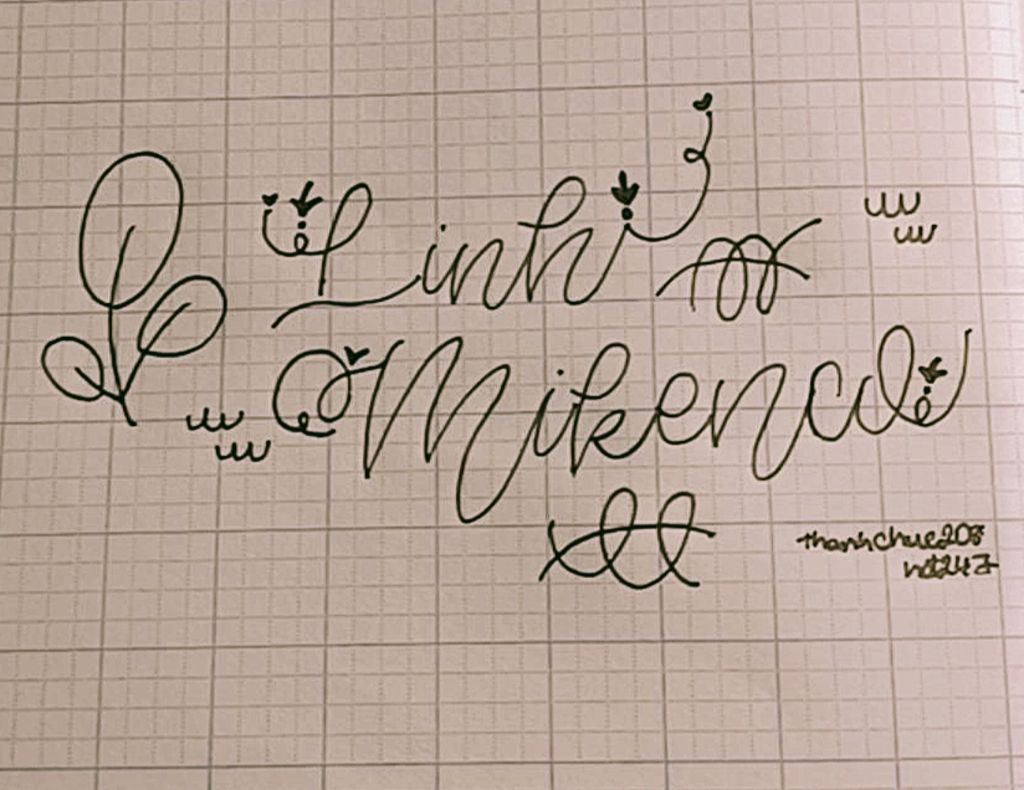 Linh
Mikend
thanhchuc208
nct247